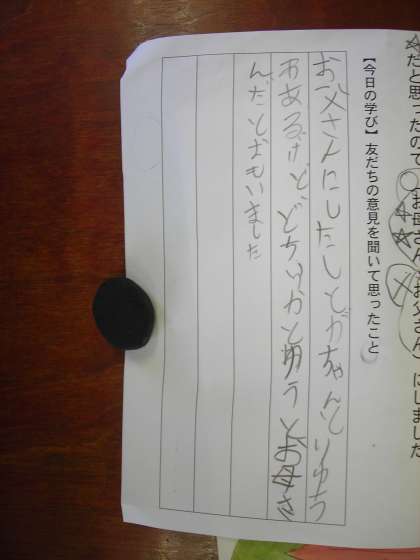 だと思ったので○お母さん お父さん にしました
【今日の学び】友だちの意見を聞いて思ったこと
お父さんにしたしとがちゃんとりゆう
おあるけどどちらかと言うとお母さ
んだとおもいました